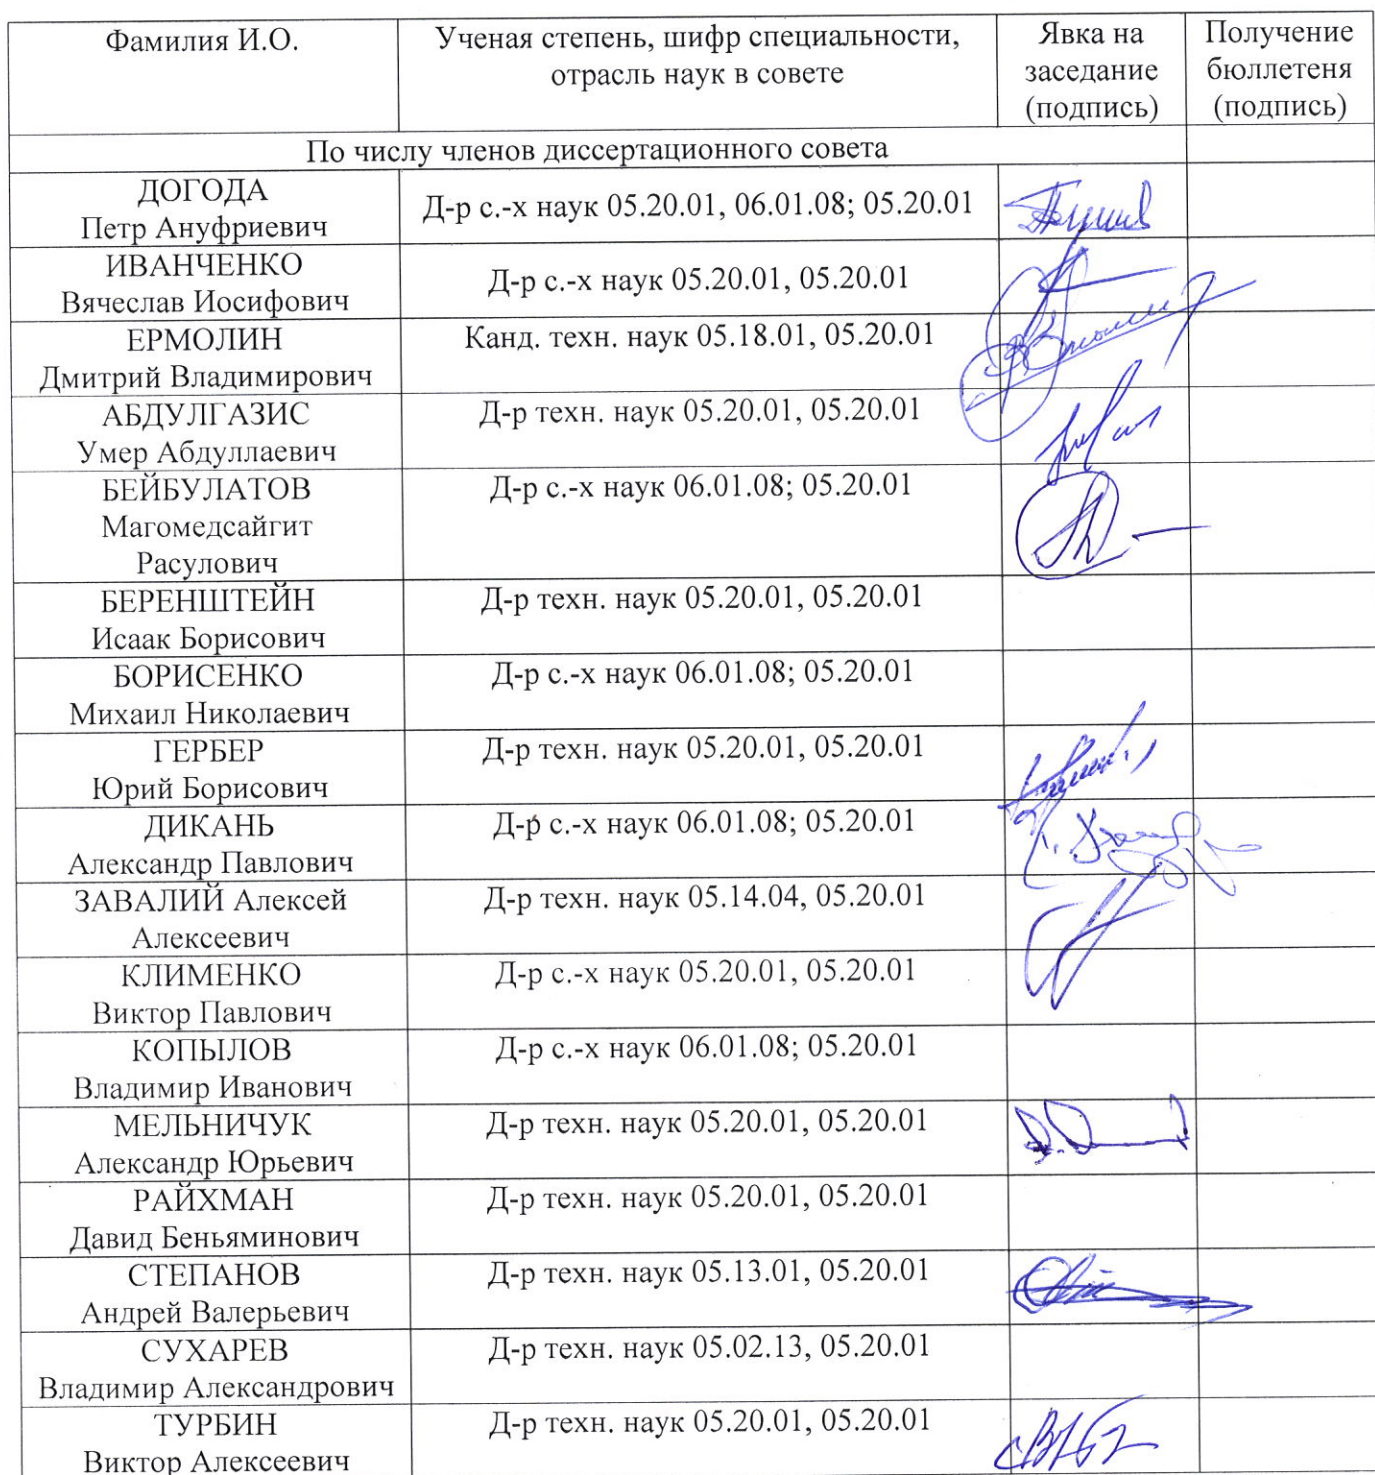 Фамилия И.О.
Ученая степень, шифр специальности,
отрасль наук в совете
Явка на
заседание
(подпись)
Получение
бюллетеня
(подпись)
По числу членов диссертационного совета
ДОГОДА
Петр Ануфриевич
Д-р с.-х наук 05.20.01, 06.01.08; 05.20.01
ИВАНЧЕНКО
Вячеслав Иосифович
Д-р с.-х наук 05.20.01, 05.20.01
ЕРМОЛИН
Дмитрий Владимирович
Канд. техн. наук 05.18.01, 05.20.01
АБДУЛГАЗИС
Умер Абдуллаевич
Д-р техн. наук 05.20.01, 05.20.01
БЕЙБУЛАТОВ
Магомедсайгит
Расулович
Д-р с.-х наук 06.01.08; 05.20.01
БЕРЕНШТЕЙН
Исаак Борисович
Д-р техн. наук 05.20.01, 05.20.01
БОРИСЕНКО
Михаил Николаевич
Д-р с.-х наук 06.01.08; 05.20.01
ГЕРБЕР
Юрий Борисович
Д-р техн. наук 05.20.01, 05.20.01
ДИКАНЬ
Александр Павлович
Д-р с.-х наук 06.01.08; 05.20.01
ЗАВАЛИЙ Алексей
Алексеевич
Д-р техн. наук 05.14.04, 05.20.01
КЛИМЕНКО
Виктор Павлович
Д-р с.-х наук 05.20.01, 05.20.01
КОПЫЛОВ
Владимир Иванович
Д-р с.-х наук 06.01.08; 05.20.01
МЕЛЬНИЧУК
Александр Юрьевич
Д-р техн. наук 05.20.01, 05.20.01
РАЙХМАН
Давид Беньяминович
Д-р техн. наук 05.20.01, 05.20.01
СТЕПАНОВ
Андрей Валерьевич
Д-р техн. наук 05.13.01, 05.20.01
СУХАРЕВ
Владимир Александрович
Д-р техн. наук 05.02.13, 05.20.01
ТУРБИН
Виктор Алексеевич
Д-р техн. наук 05.20.01, 05.20.01